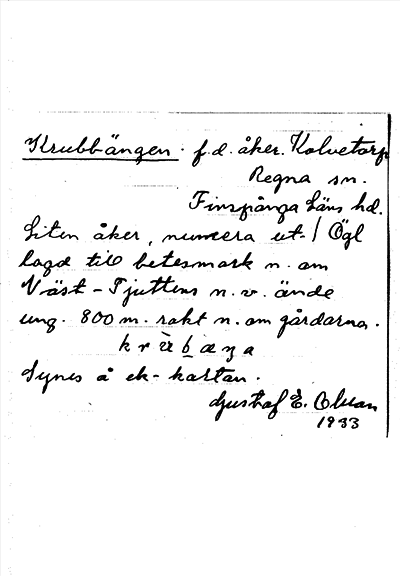 Krubbängen. f.d. åker. Kolvetorp
Regna sn.
Finspånga läns hd.
Liten åker, numera ut-/ Ögl
lagd till betesmark n. om
Väst-Tjuttens n.v. ände
ung. 800 m. rakt n. om gårdarna.
Synes å ek-kartan.
Gustaf E. Olsson
1933